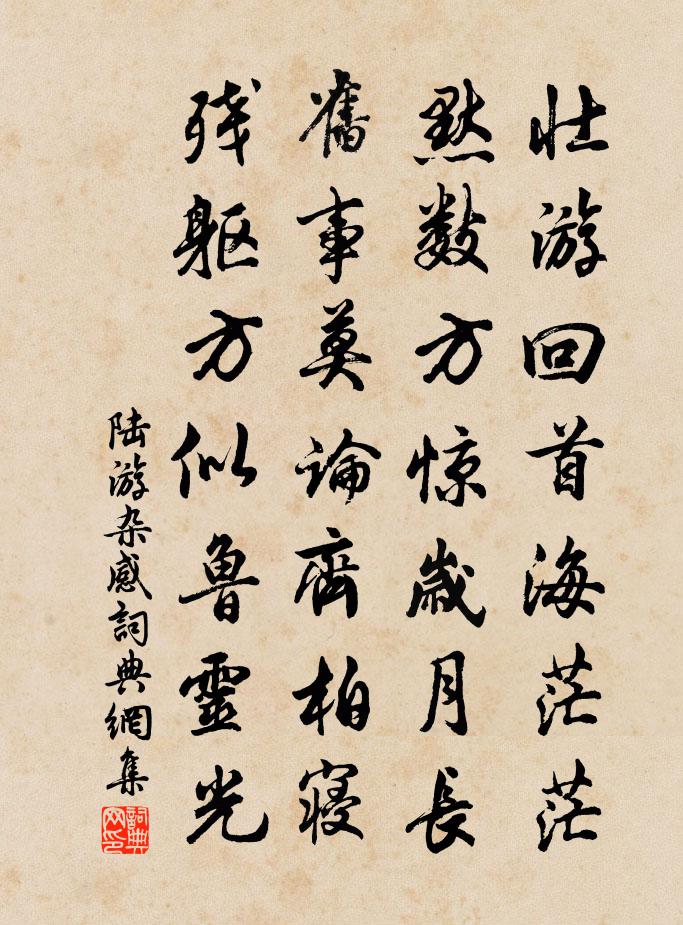 壮游回首海茫茫
默数方惊歳月長
舊事莫論齊柏寝
残軀方似魯靈光
陆游杂感詞典網集
詞典网印